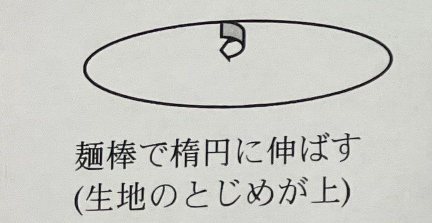 麺棒で楕円に伸ばす
(生地のとじめが上)